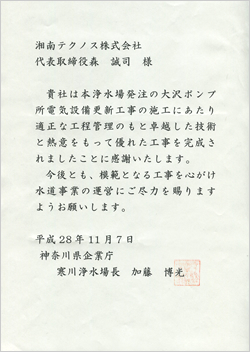 湘南テクノス株式会社
代表取締役森 誠司 様
貴社は本浄水場発注の大沢ポンプ
所電気設備更新工事の施工にあたり
適正な工程管理のもと卓越した技術
と熱意をもって優れた工事を完成さ
れましたことに感謝いたします。
今後とも、模範となる工事を心がけ
水道事業の運営にご尽力を賜ります
ようお願いします。
平成28年11月7日
神奈川県企業庁
寒川浄水場長 加藤 博光